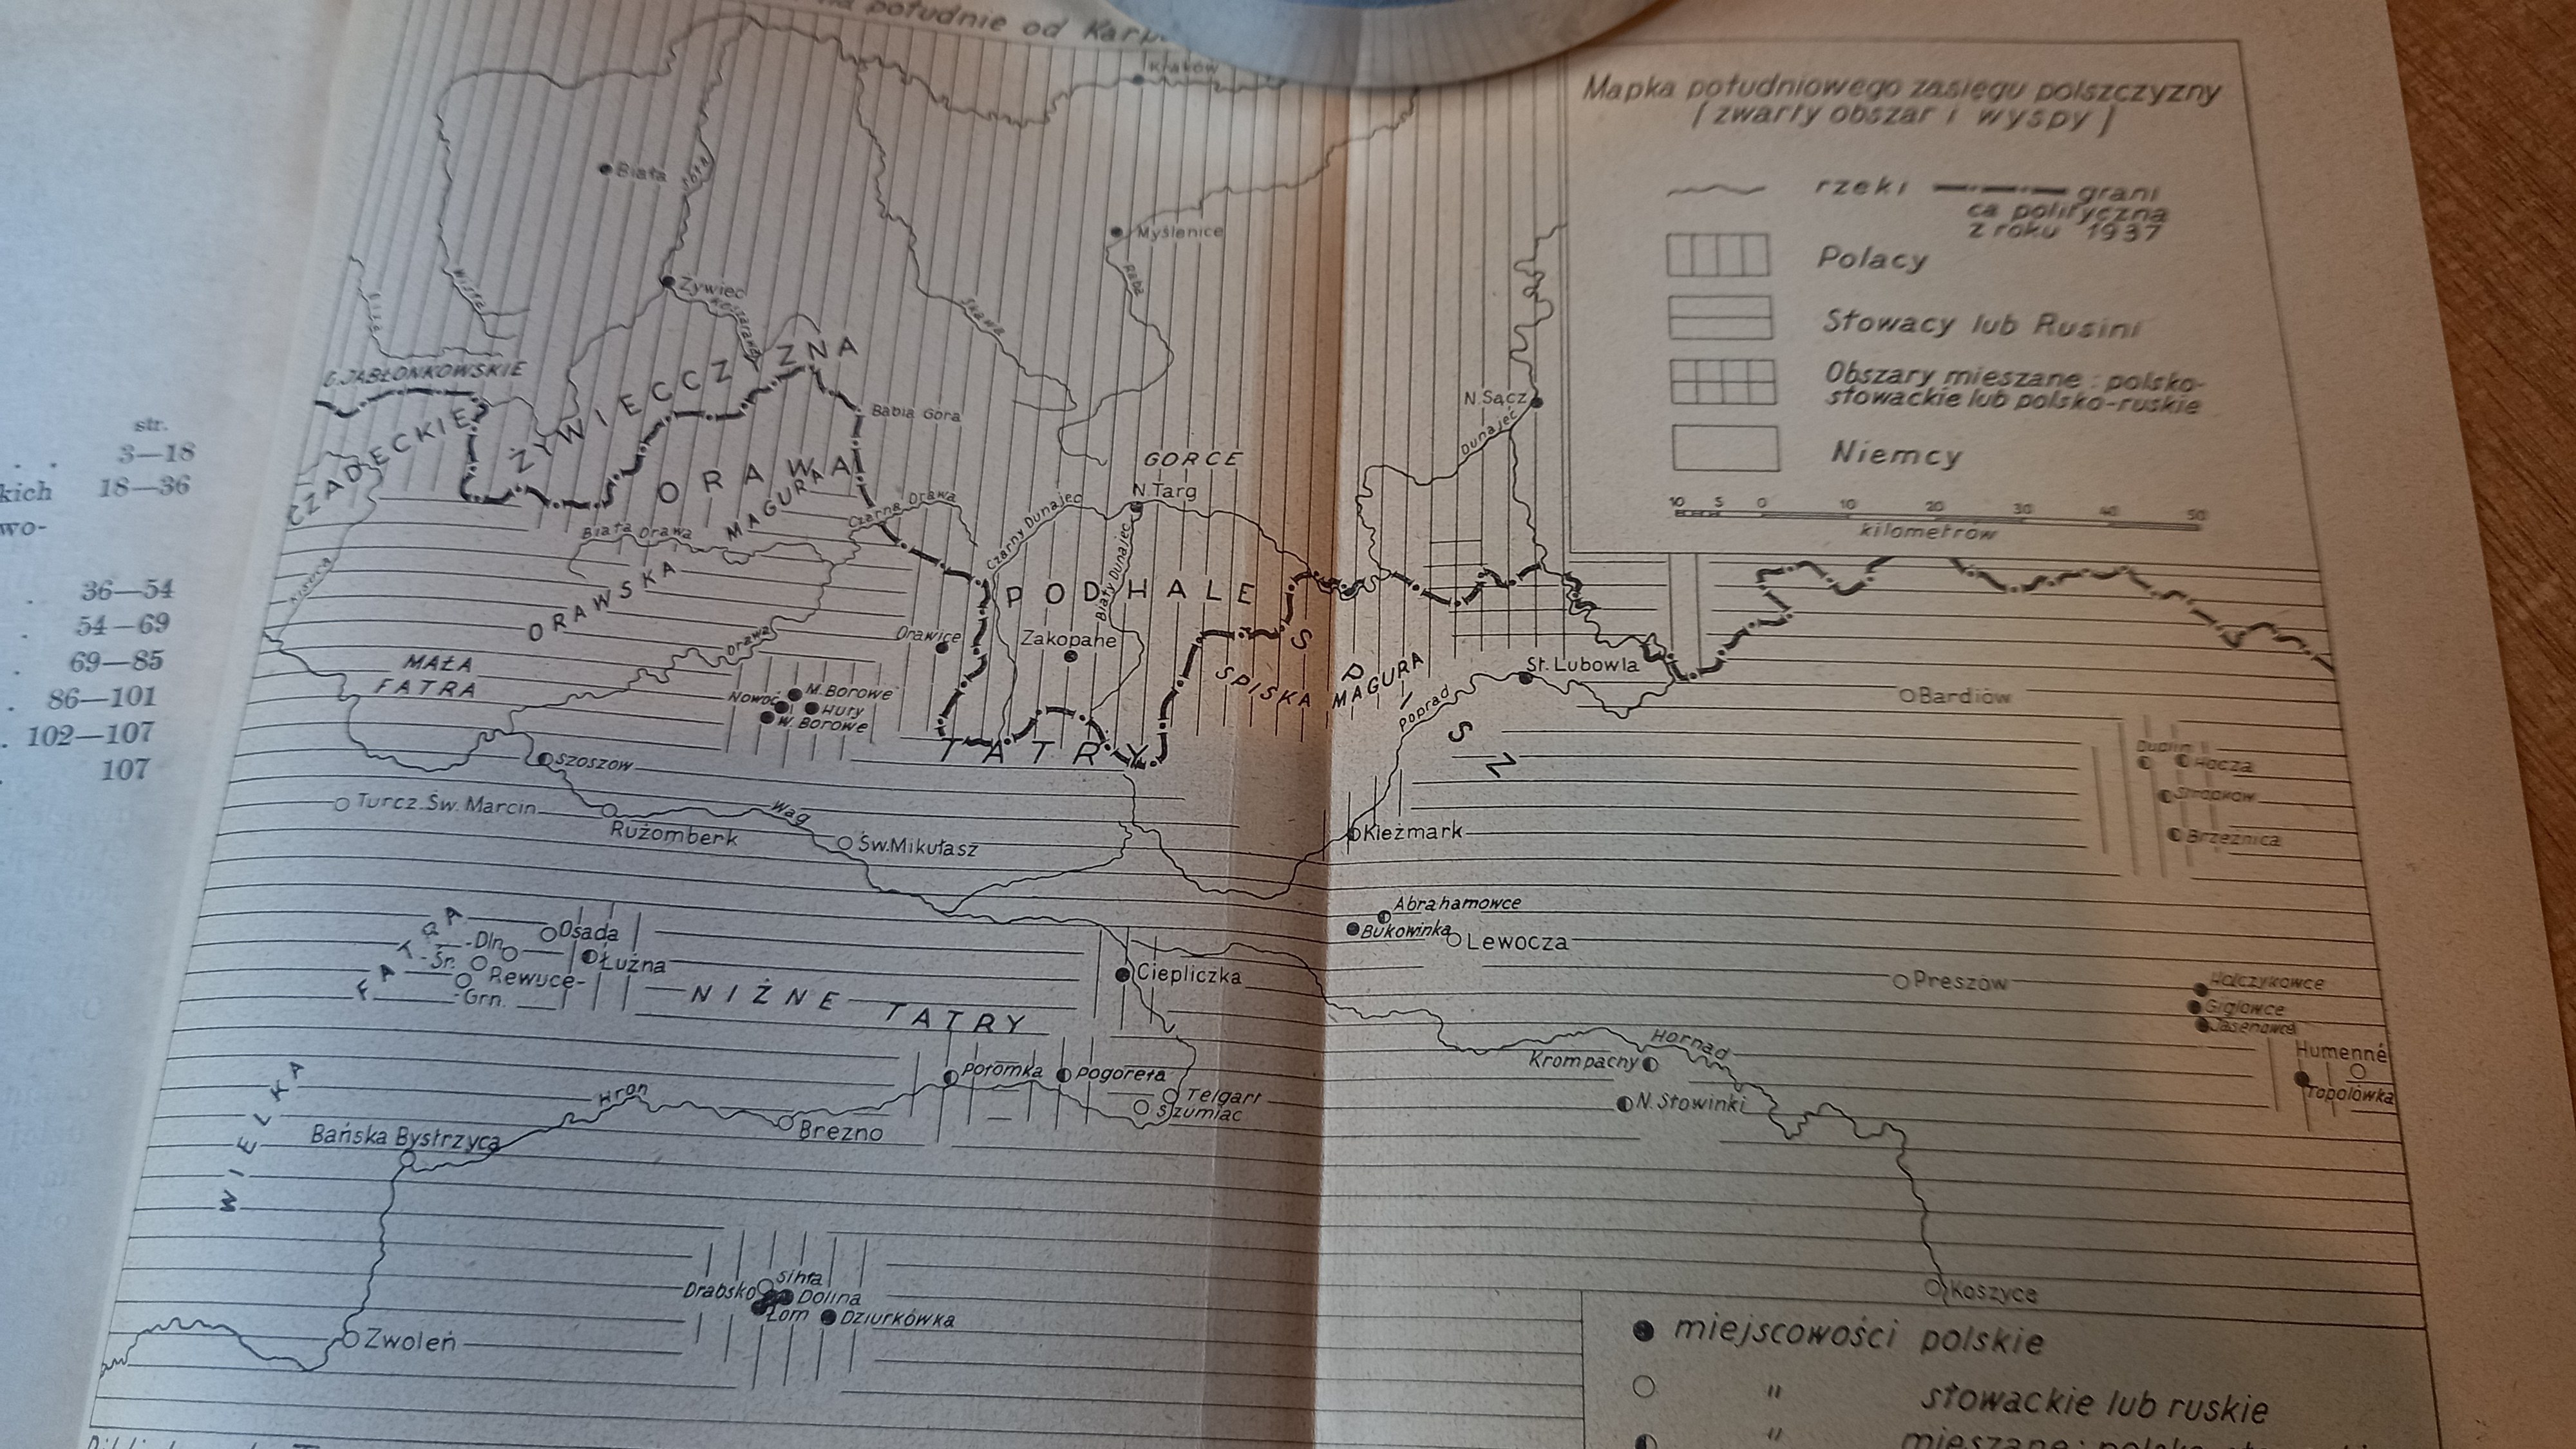 str.
3—18
kich 18—36
wo-
36—54
54—69
69—85
86—101
102—107
107
na południe od
Mapka południowego zasięgu polszczyzny
(zwarty obszar i wyspy)
rzeki
grani
ca polityczna
z roku 1937
Polacy
Słowacy lub Rusini
Obszary mieszane: polsko-
słowackie lub polsko-ruskie
Niemcy
10 5 0 10 20 30 40 50
kilometrów
Kraków
Biała
Soła
Myślenice
Raba
Wisła
Żywiec
Skawa
C. JABŁONKOWSKIE
CZADECKIE
ŻYWIECCZYZNA
Babia Góra
N. Sącz
Dunajec
GORCE
N. Targ
ORAWA
MAGURA
Czarna Orawa
Czarny Dunajec
Biały Dunajec
Biała Orawa
ORAWSKA
PODHALE
Orawa
Orawice
Zakopane
SPISZ
SPISKA MAGURA
St. Lubowla
Poprad
Bardiów
MAŁA
FATRA
Nowoć
M. Borowe
Hury
W. Borowe
TATRY
Szoszów
Turcz. Św. Marcin
Rużomberk
Wag
Św. Mikułasz
Kieżmark
Duplin
Hocza
Stropków
Brzeźnica
FATRA
Osada
-Dln.
-Śr.
Rewuce-
-Grn.
Łużna
NIŻNE TATRY
Ciepliczka
Abrahamowce
Bukowinka
Lewocza
Preszów
Holczykowce
Giglowce
Jasenowce
Humenné
Topolówka
Hornad
Krompachy
N. Słowinki
Połomka
Pogoreła
Telgart
Szumiac
Hron
Brezno
WIELKA
Bańska Bystrzyca
Sihła
Drabsko
Dolina
Łom
Dziurkówka
Zwoleń
Koszyce
miejscowości polskie
" słowackie lub ruskie
" mieszane: polsko-